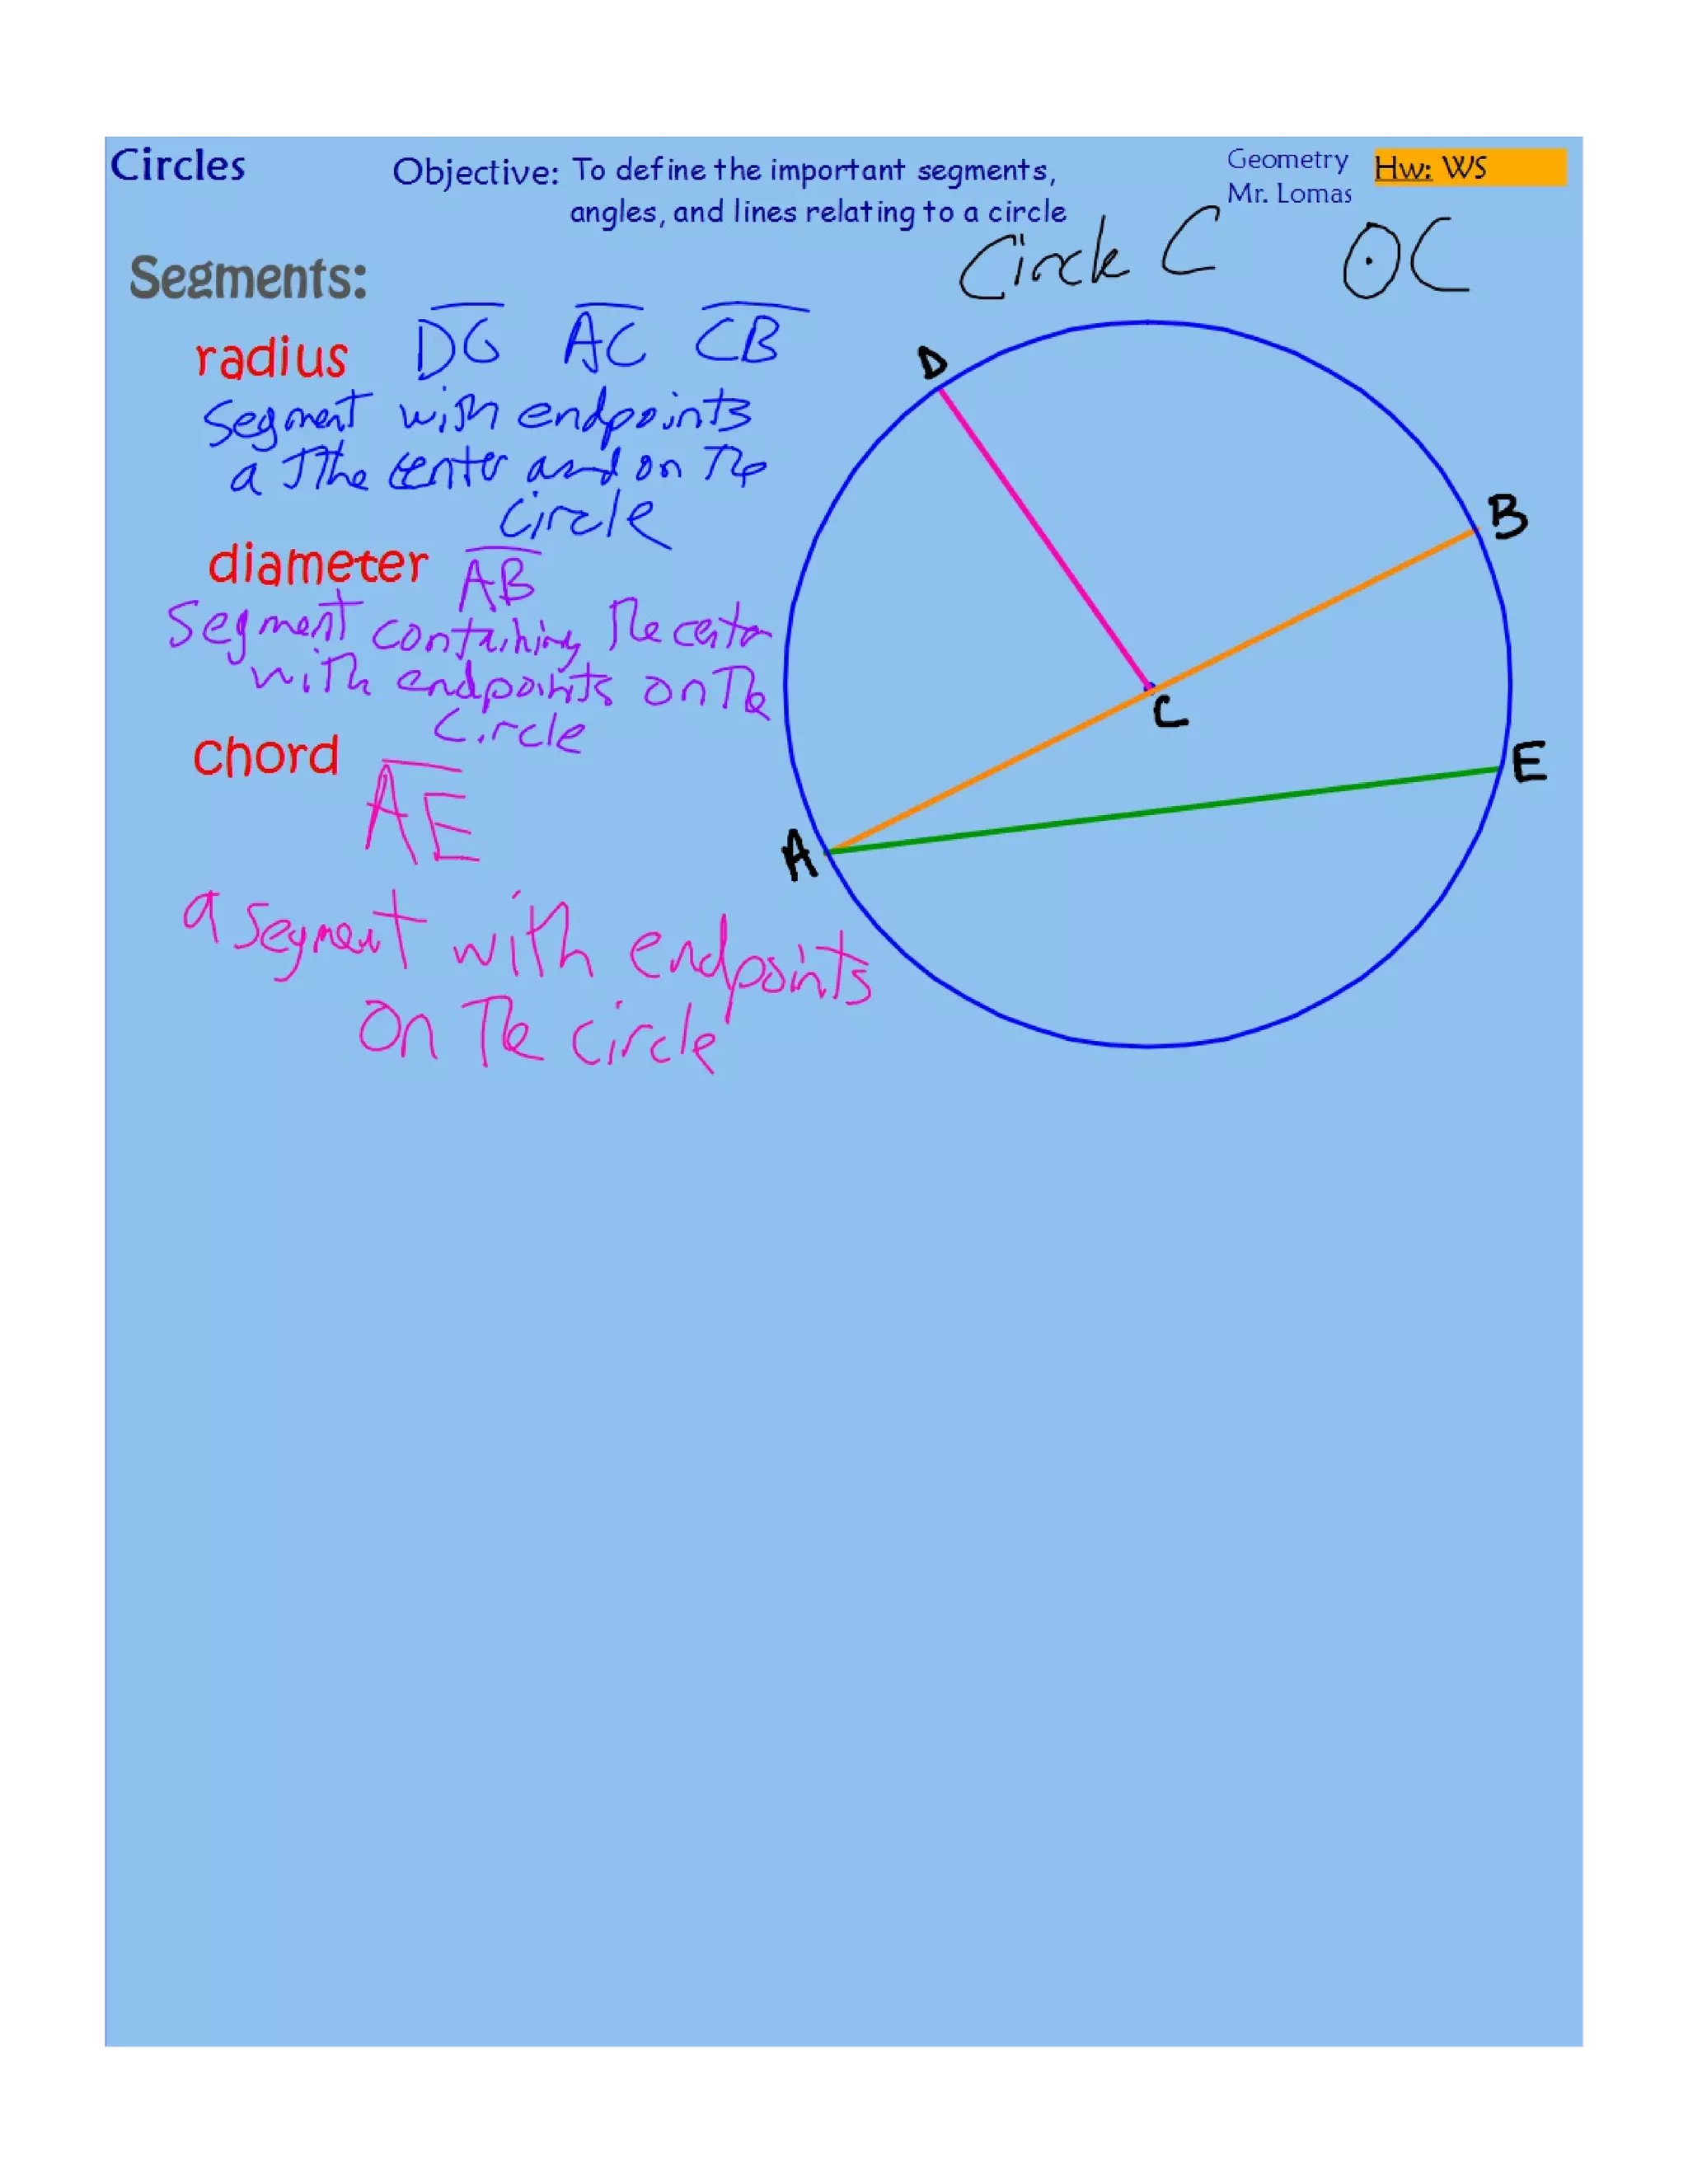 Circles
Objective: To define the important segments,
angles, and lines relating to a circle
Geometry
Mr. Lomas
Hw: WS
Circle C ⊙C
Segments:
radius DG AC CB
segment with endpoints
at the center and on the
circle
diameter AB
segment containing the center
with endpoints on the
circle
chord
AE
a segment with endpoints
on the circle
D
B
C
E
A